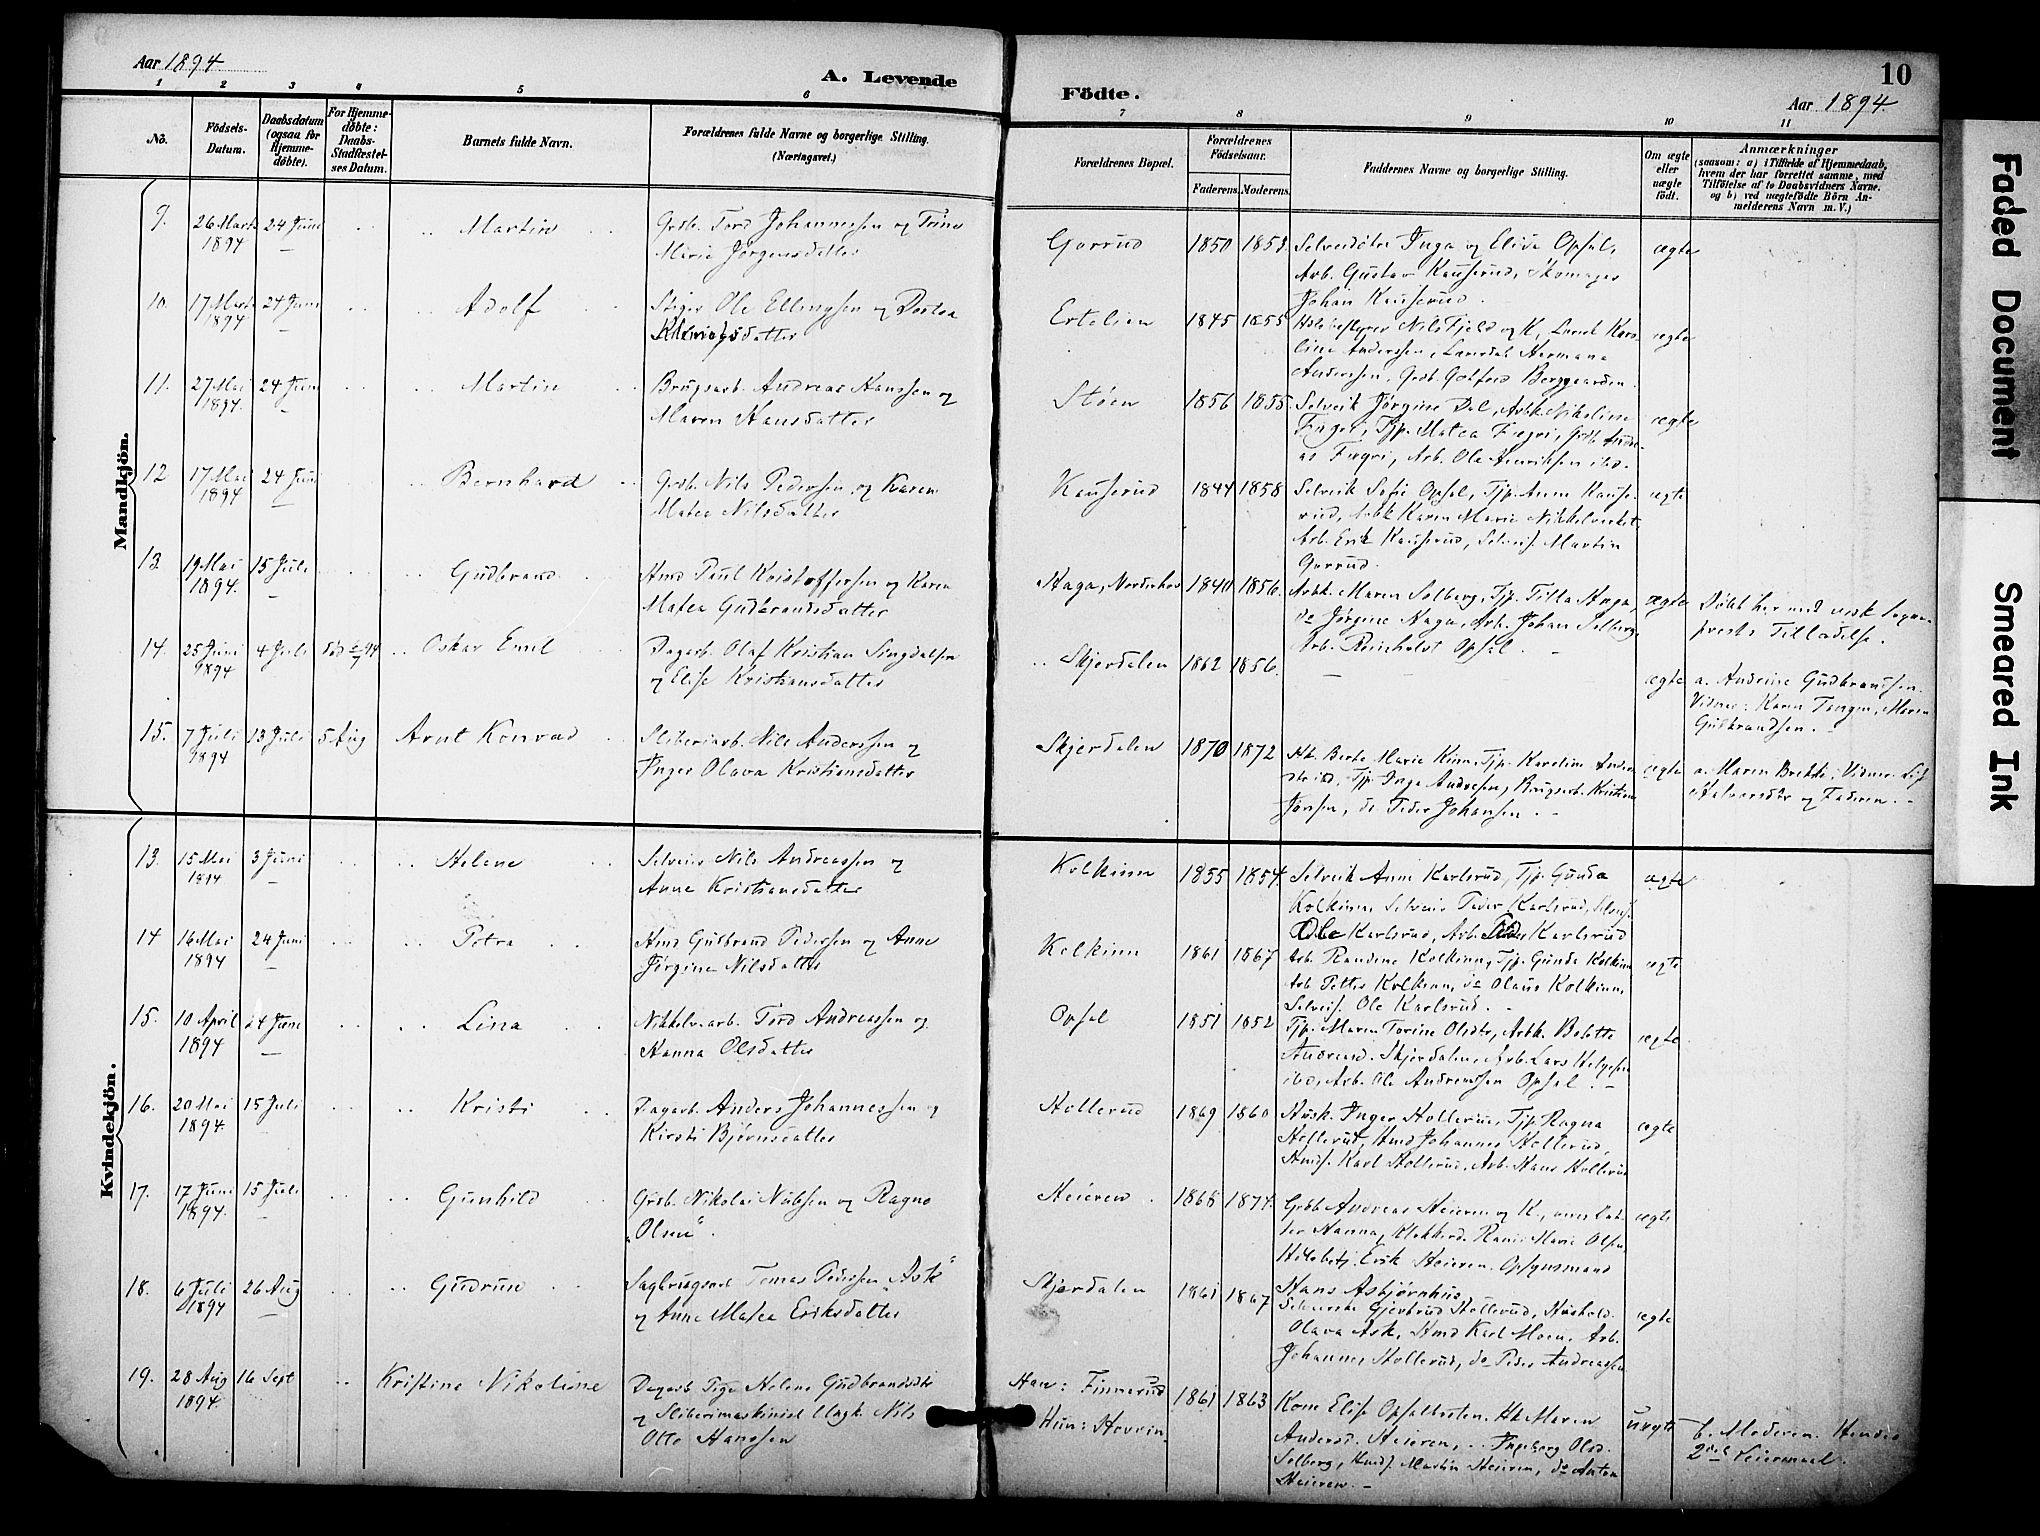 Aar 1894
A. Levende
Födte.
10
Aar 1894.
1 2 3 4 5 6 7 8 9 10 11
No.
Födsels-
Datum.
Daabsdatum
(ogsaa for
Hjemme-
döbte).
For Hjemme-
döbte:
Daabs-
Stadfæstel-
ses Datum.
Barnets fulde Navn.
Forældrenes fulde Navne og borgerlige Stilling.
(Næringsvei.)
Forældrenes Bopæl.
Forældrenes
Födselsaar.
Faderens. Moderens.
Faddernes Navne og borgerlige Stilling.
Om ægte
eller
uægte
født.
Anmærkninger
(saasom: a) i Tilfælde af Hjemmedaab,
hvem der har forrettet samme, med
Tilföielse af to Daabsvidners Navne.
og b) ved uægtefödte Börn An-
melderens Navn m. V.)
Mandkjön.
9. 26 Marts 24 Juni Martin Grdb. Tord Johannessen og Trine
1894 Marie Jørgensdatter
Garrud 1850 1853. Inga og Elise Opsal, ægte
Arb. Gustav Kauserud, Skomager
Johan Kauserud.
10. 17 Marts 24 Juni Adolf Stiger Ole Ellingsen og Dortea
1894 datter
Ertelien 1845 1855 Nils Fjeld og K, ægte
line Anderssen, Hermana
Anderssen, Grdb. Berggaarden.
11. 27 Mai 24 Juni Martin Brugsarb. Andreas Hanssen og
1894. Maren Hansdatter
Støen 1856 1855. Selveik Jørgine Dal, Arbk. Nikoline ægte
Tjp. Matea Fægri, Grdb. Andre-
as Fægri, Arb. Ole Henriksen ibd.
12 17 Mai 24 Juni Bernhard Grdb. Nils Pedersen og Karen
1894 Matea Nilsdatter
Kauserud 1844 1858 Selveik Sofie Opsal, Tjp. Anna Kause- ægte
rud, Arbk Karen Marie Nikkelverket
Arb. Erik Kauserud, Selveis. Martin
Garrud.
13. 19 Mai 15 Juli Gudbrand Hmd Paul Kristoffersen og Karen
1894. Matea Gudbrandsdatter
Haga, Norderhov 1840 1856. Arbk. Maren Solberg, Tjp. Tilla Haga, ægte Døbt her med vedk Sogne-
do Jørgine Haga, Arb. Johan Solberg, prests Tilladelse.
Arb. Reinholdt Opsal.
14. 25 Juni 4 Juli Oskar Emil Dagarb. Olaf Kristian Singdalsen
1894 og Elise Kristiansdatter
Skjerdalen 1862 1856. ægte a. Andrine Gudbrandsen.
Vidner: Karen Tangen, Maren
Gudbrandsen.
15. 7 Juli 13 Juli 5 Aug Arnt Konrad Sliberiarb. Nils Anderssen og
1894 Inger Olava Kristiansdatter
Skjerdalen 1870 1872 Hk. Berte Marie Kinn, Tjp. Karoline Anders- ægte a. Maren Brekke; Vidner:
datr ibd, Tjp Inga Andresen, Brugsarb. Kristian Halvorsdtr og Faderen.
Jørsen, do Peder Johansen.
Kvindekjön.
13. 15 Mai 3 Juni Helene Selveier Nils Andreassen og
1894 Anne Kristiansdatter
Kolkinn 1855 1854. Selveik Anne Karlsrud, Tjp. Gunda ægte
Kolkinn, Selveier Peder Karlsrud,
Ole Karlsrud, Arb. Karlsrud
14 16 Mai 24 Juni Petra Hmd Gudbrand Pedersen og Anne
1894 Jørgine Nilsdatter
Kolkinn 1861 1867 Randine Kolkinn, Tjp. Gunda Kolkinn ægte
Arb Petter Kolkinn, do Olaus Kolkinn,
Selveis. Ole Karlsrud.
15. 10 April 24 Juni Lina Nikkelv.arb. Tord Andreassen og
1894 Hanna Olsdatter
Opsal 1851 1852 Tjp. Maren Torine Olsdtr, Arbk. Bolette ægte
Andreasd. Skjerdalen, Arb. Lars Helgesen
ibd, Arb. Ole Andreassen Opsal.
16. 20 Mai 15 Juli Kristi Dagarb. Anders Johannessen og
1894. Kirsti Bjørnsdatter
Hollerud 1869 1860 Husk. Inger Hollerud, Tjp. Ragna ægte
Hollerud, Hmd Johannes Hollerud,
Hmds. Karl Hollerud, Arb. Hans Hollerud
17. 17 Juni 15 Juli Gunhild Grdb. Nikolai Nubsen og Ragne
1894. "Olsen".
Heieren. 1868 1874. Grdb. Andreas Heieren og K., dat- ægte
ter Hanna, Marie Olsen,
Erik Heieren. Opsynsmand
Hans Asbjørnhus.
18. 6 Juli 26 Aug Gudrun Sagbrugsarb Tomas Pedersen "Ask"
1894 og Anne Matea Eriksdatter
Skjerdalen 1861 1867 Gjertrud Hollerud, Hushold. ægte
Olava Ask, Hmd Karl Moen, Arb.
Johannes Hollerud, do Peder Andreassen
19. 28 Aug 16 Sept Kristine Nikoline Dagarb Pige Helene Gudbrandsdtr
1894. og Sliberimaskinist Ungk. Nils
Otto Hanssen
Han: Finnerud 1861 1863 Kone Elise Opsalbraten, Hk Maren uægte b. Moderen. Hendes
Hun: Hovrin. Andersd. Heieren, Ingeborg Olsd. 2det Leiermaal.
Solberg, Hmds. Martin Heieren, do Anton
Heieren.
Faded Document
Smeared Ink